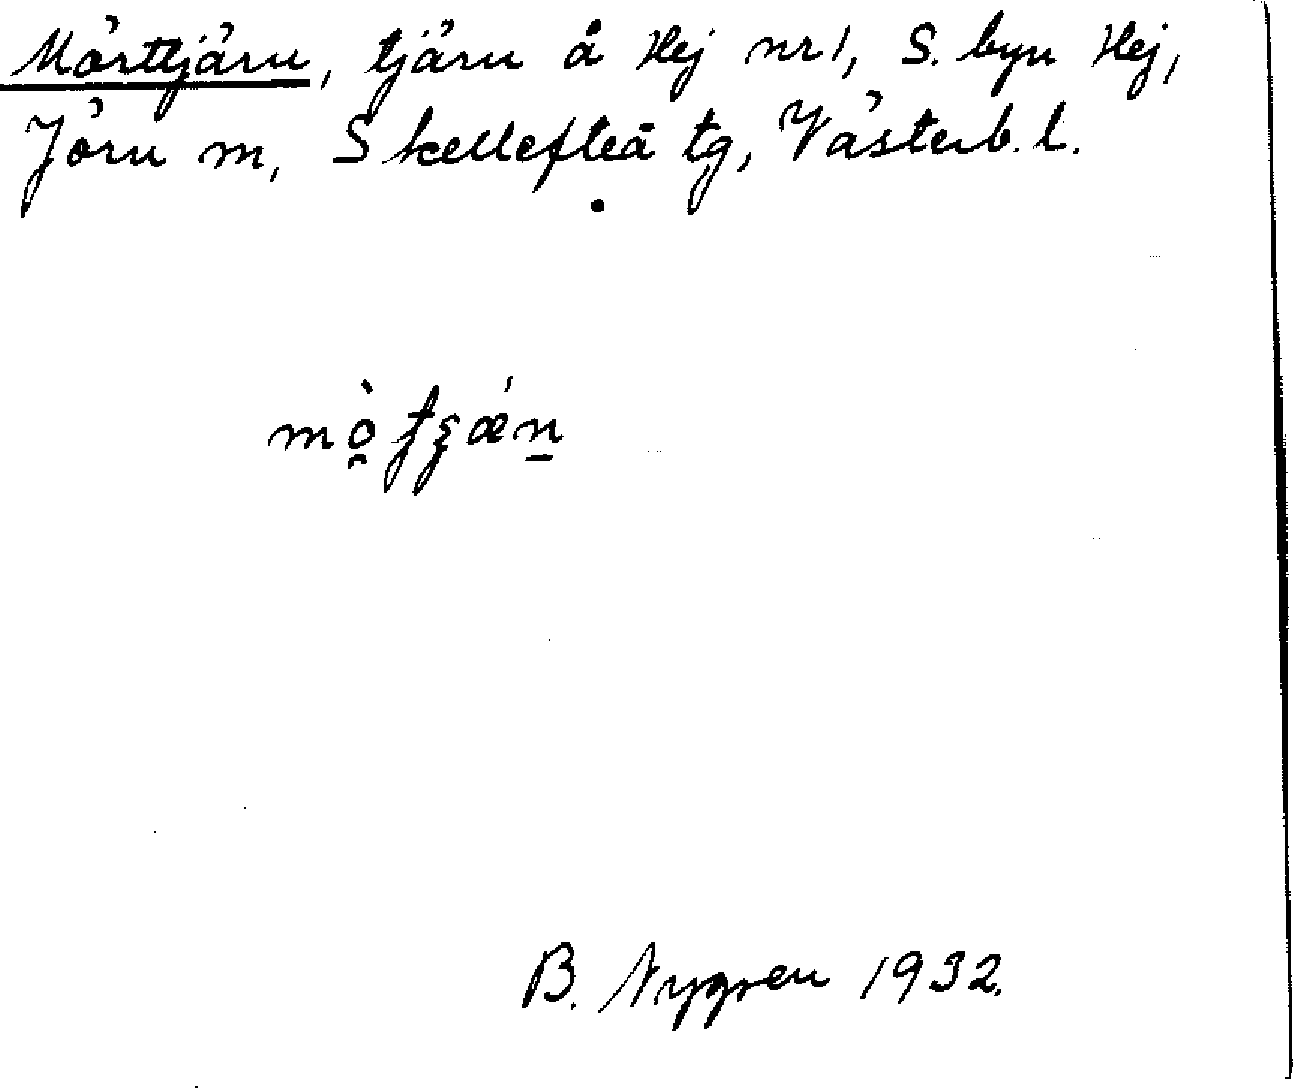 Mörttjärn, tjärn å Hej nr 1, S. byn Hej,
Jörn sn, Skellefteå tg, Västerb. l.
B. Nygren 1932.